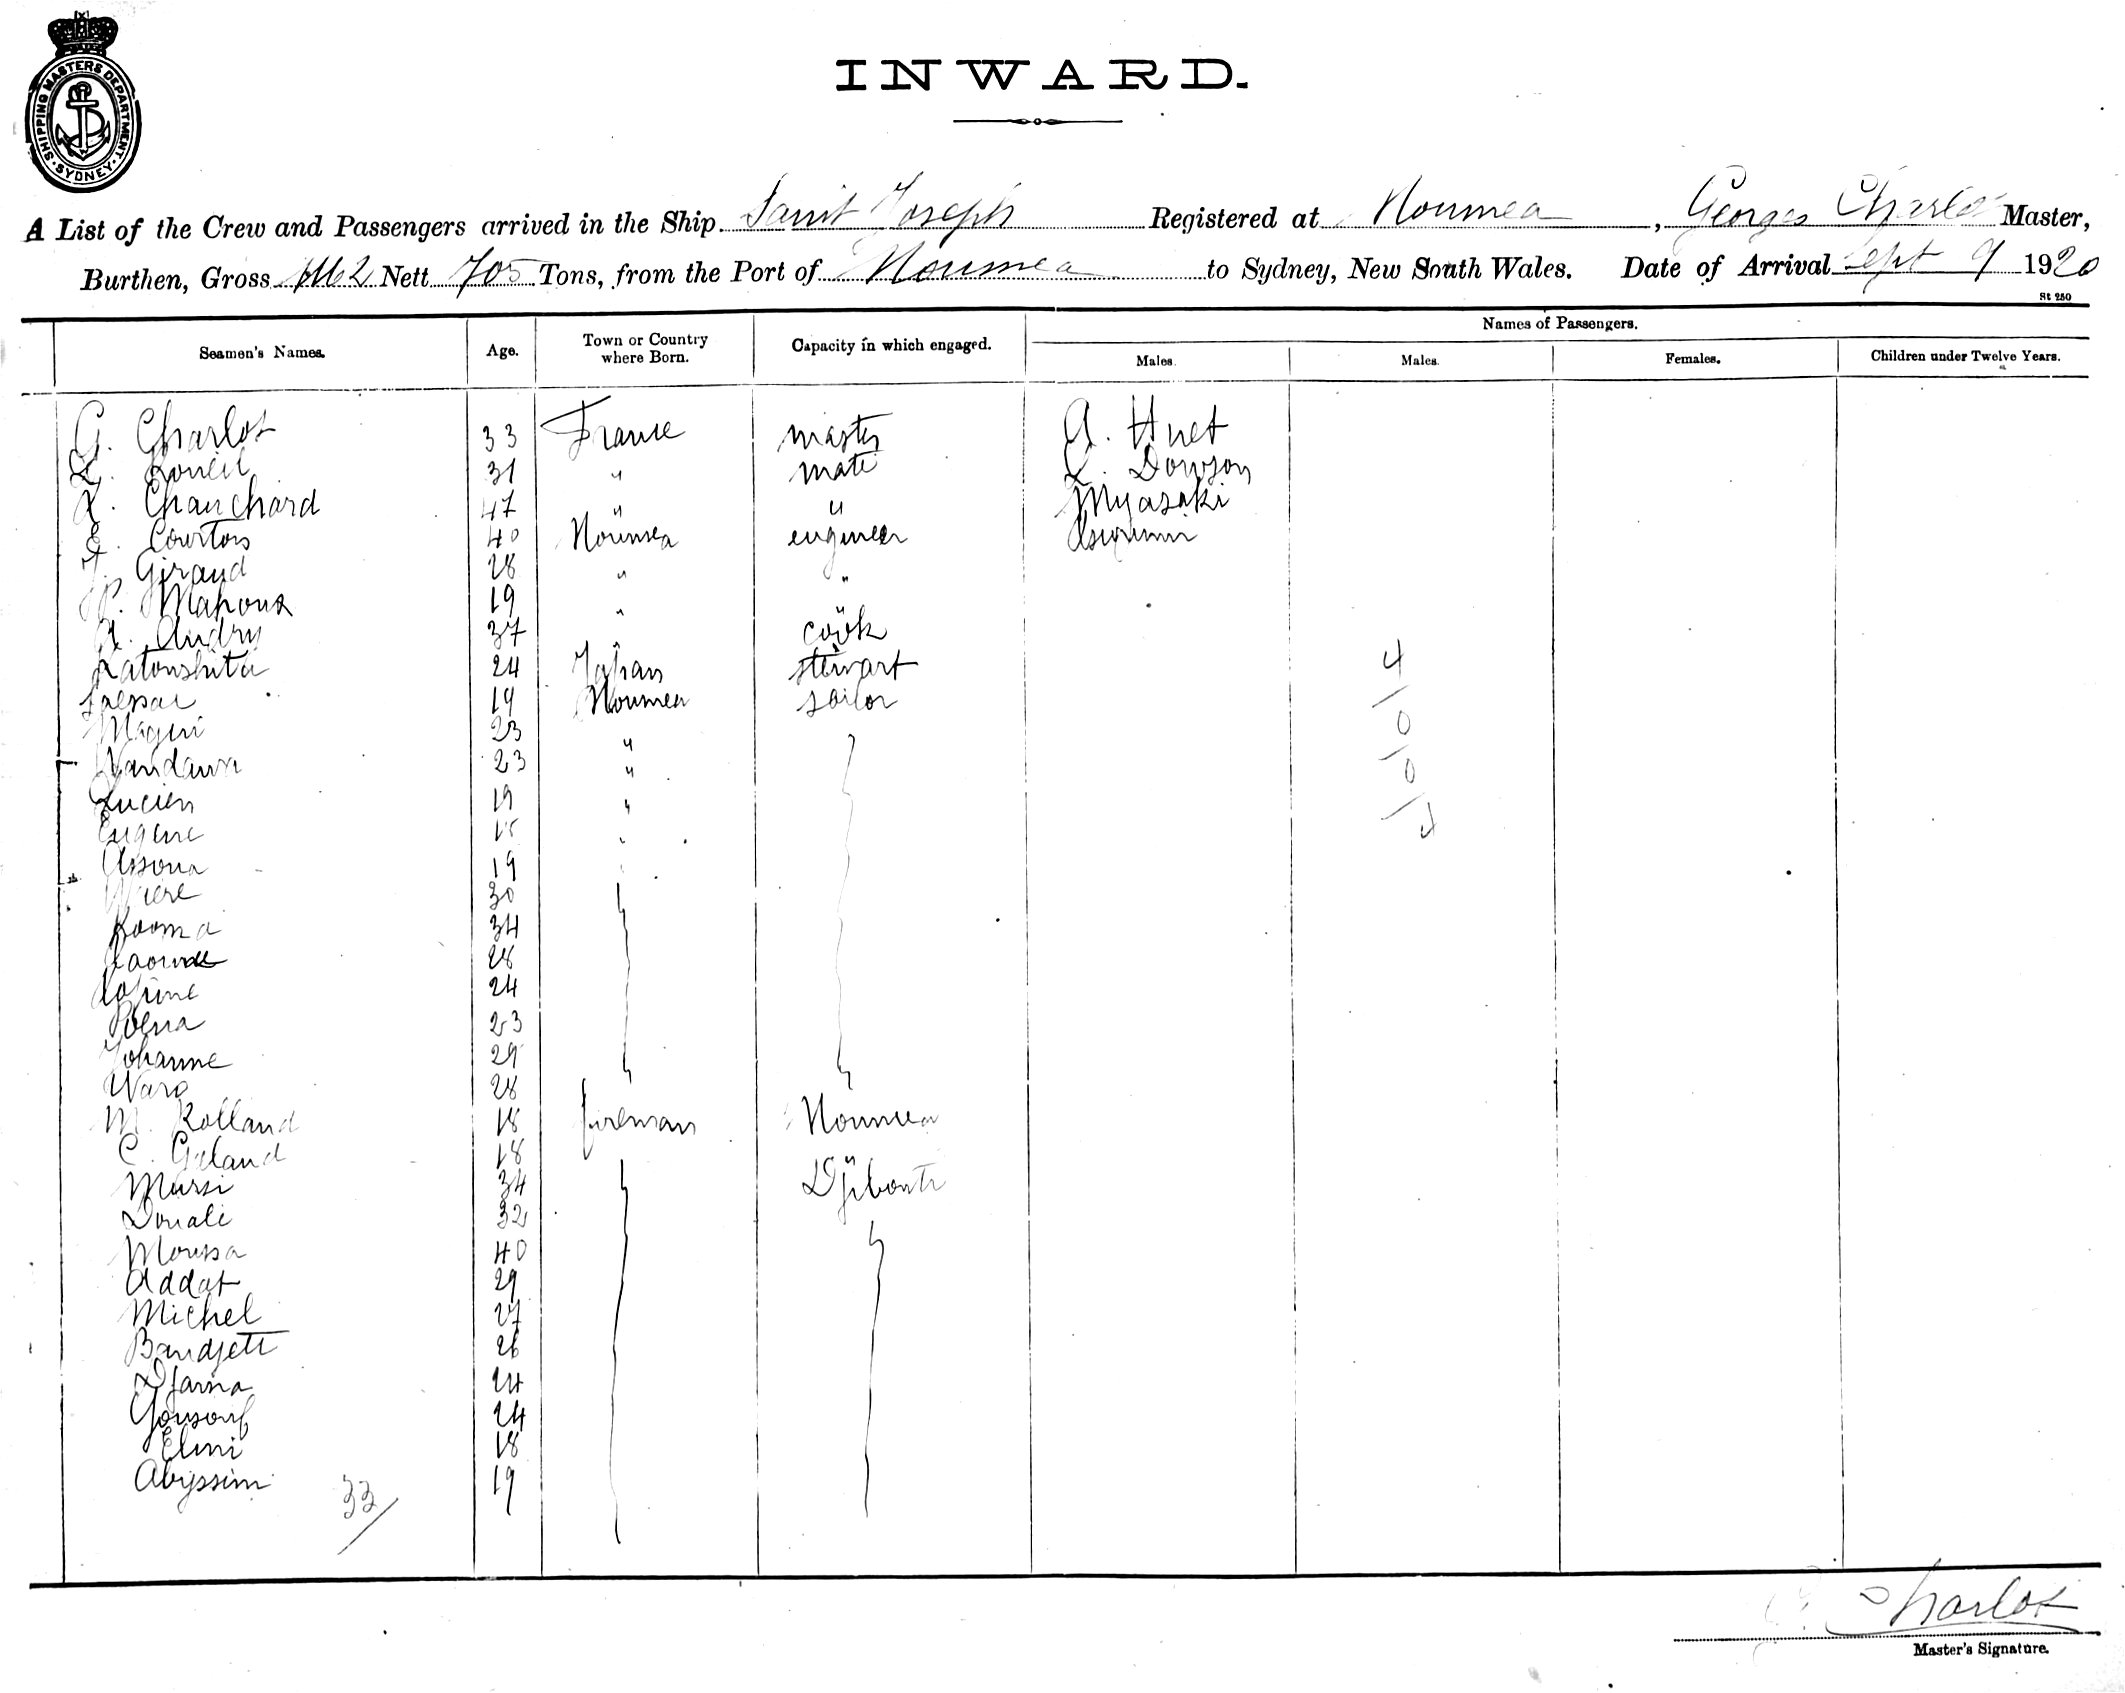 SHIPPING MASTERS DEPARTMENT
SYDNEY
INWARD.
A List of the Crew and Passengers arrived in the Ship Saint Joseph Registered at Noumea, Georges Charlot Master,
Burthen, Gross Nett 705 Tons, from the Port of Noumea to Sydney, New South Wales. Date of Arrival Sept 9 1920
St 250
Seamen's Names. Age. Town or Country where Born. Capacity in which engaged. Names of Passengers.
Males. Males. Females. Children under Twelve Years.
G. Charlot 33 France master A. Huet
31 " mate Dowson
L. Chauchard 47 " " Myasaki
E. Courtois 40 Noumea engineer
J. Giraud 28 " "
P. Mahoux 19 " "
A. Audry 37 " cook
Katonshita 24 Japan stewart
19 Noumea sailor
Magui 23 "
Wandawa 23 "
Lucien 19 "
Eugene 18 "
Assoua 19 "
Wiere 30
Kooma 34
28
24
Poena 23
Johanne 29
Waro 28
M. Rolland 18 fireman Noumea
C. Galand 18 "
Mursi 34 Djibouti
Douale 32
Moussa 40
Addat 29
Michel 27
Bandjeti 26
Djama 24
Yousouf 24
Elmi 18
Abyssini 19
33/
4/0/0/4
G. Charlot
Master's Signature.